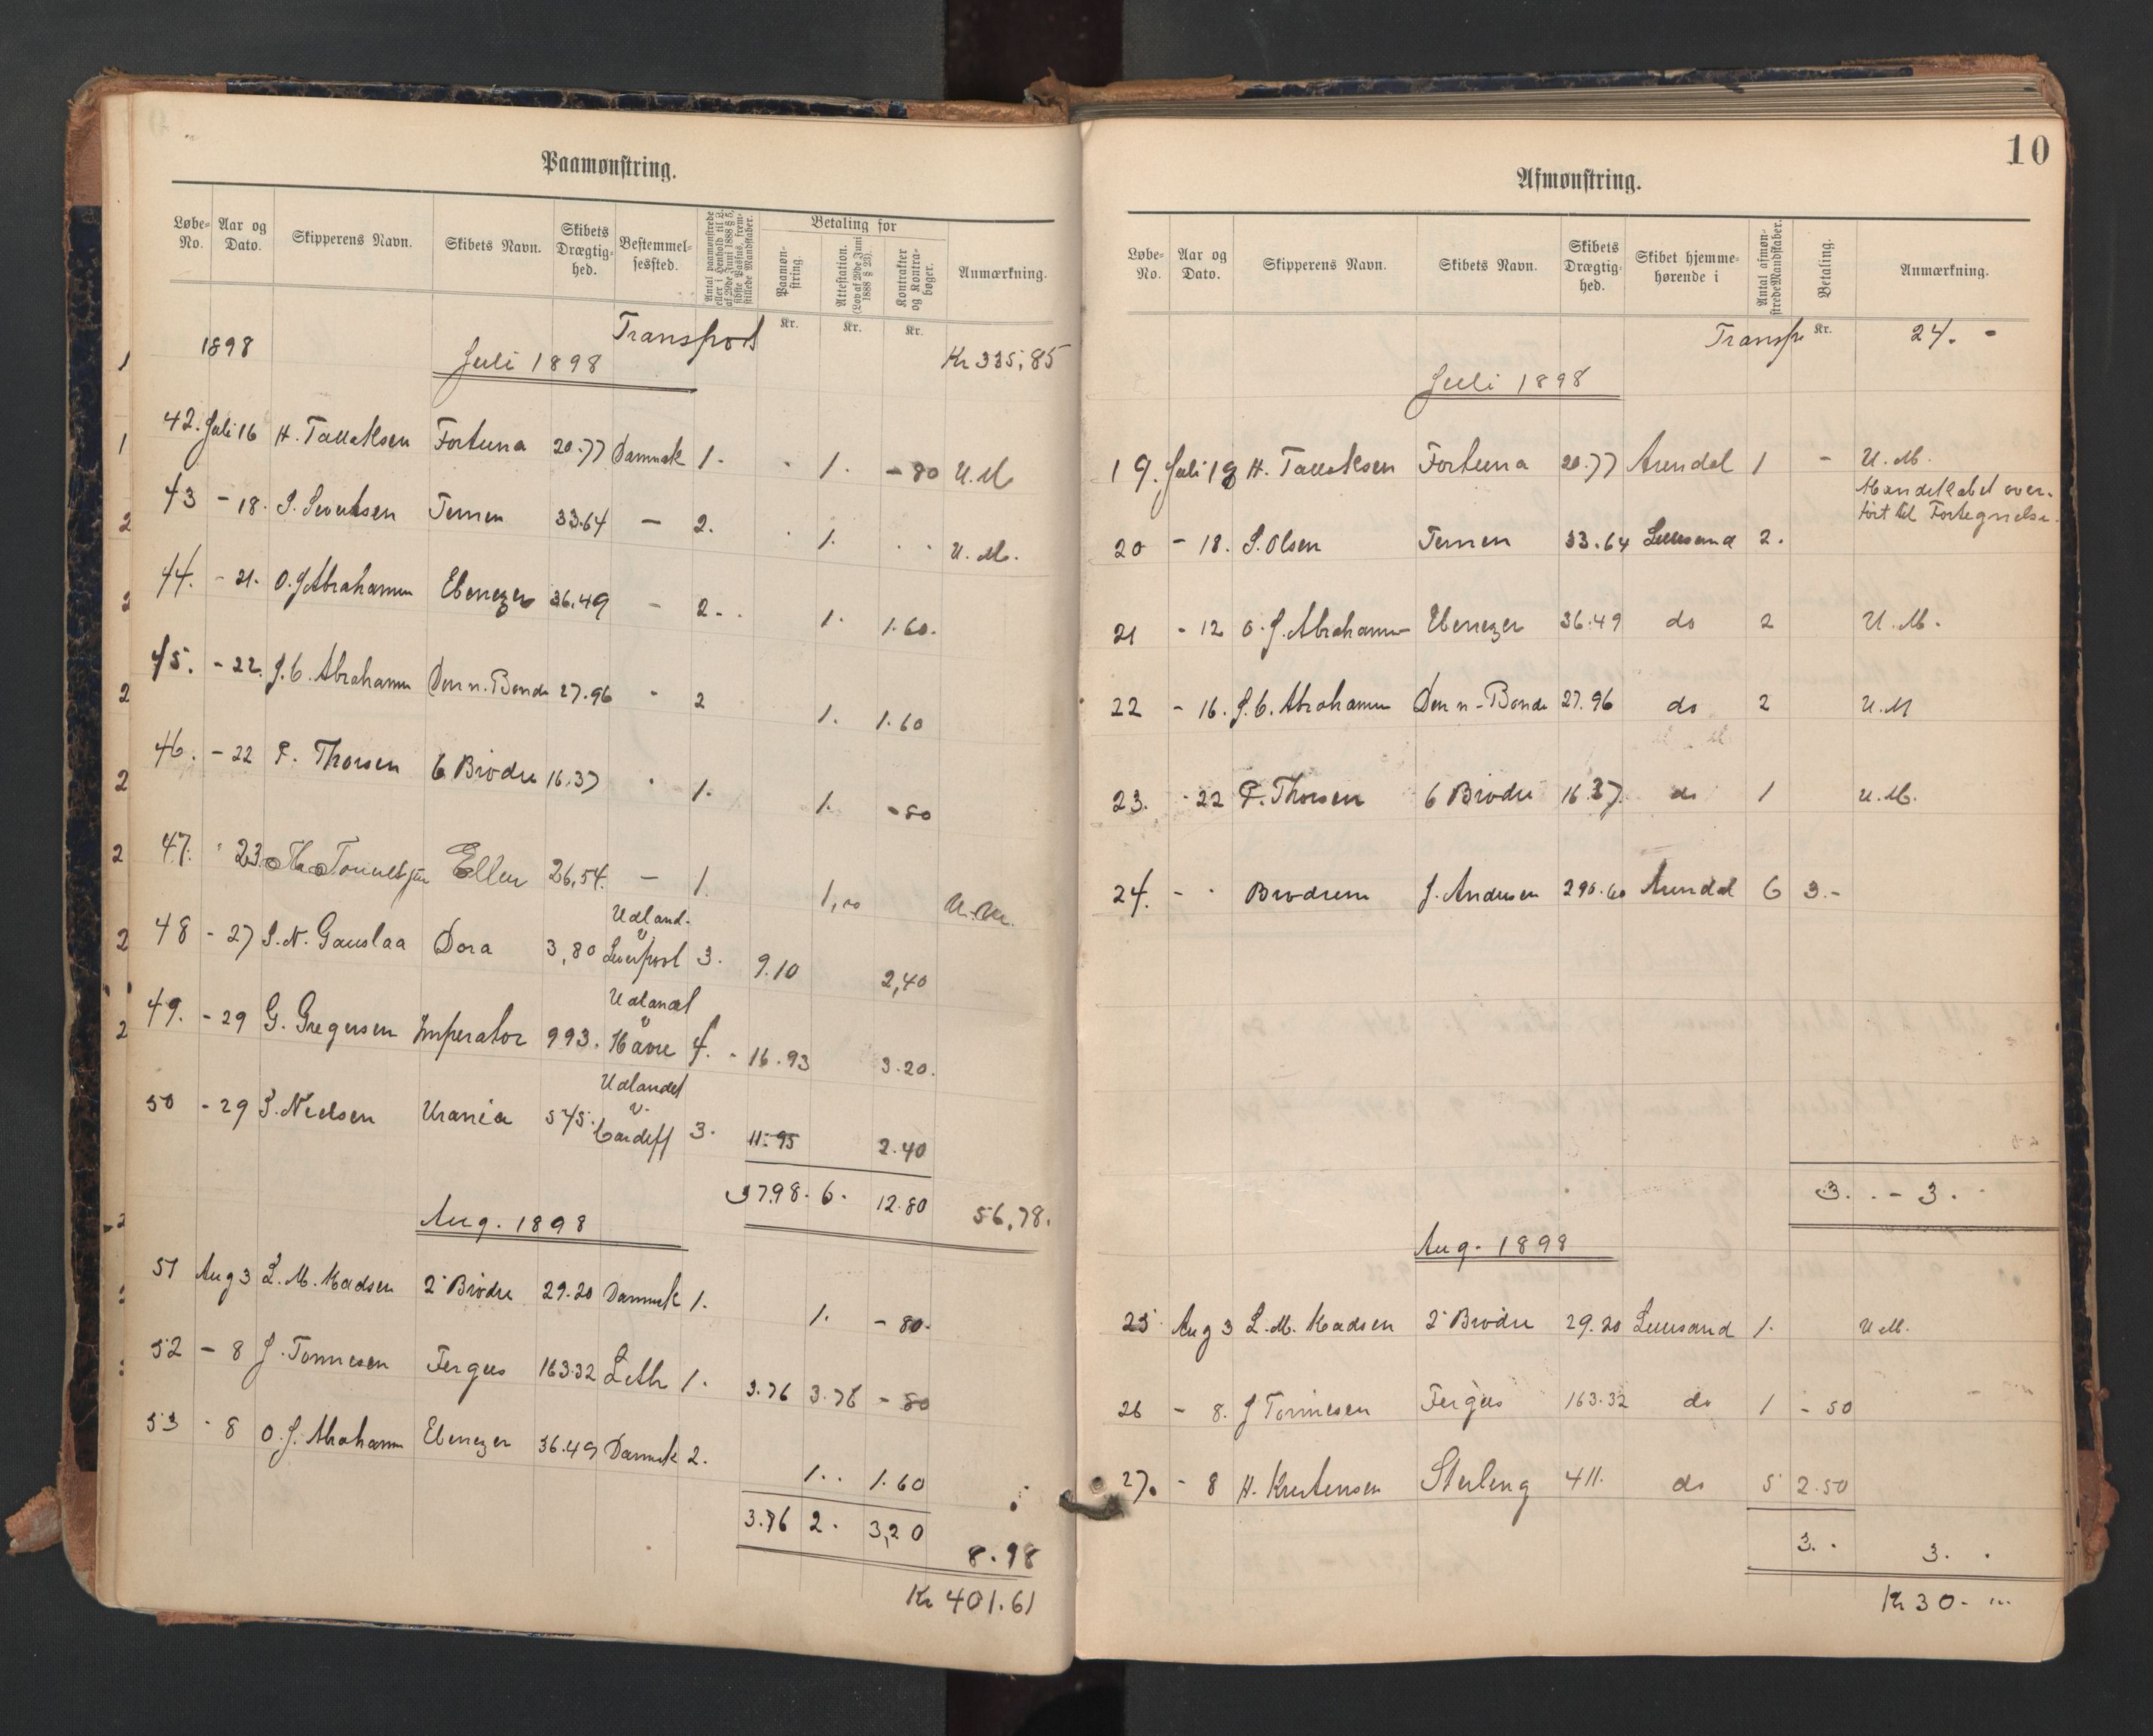 Paamønstring.
Løbe-No. Aar og Dato. Skipperens Navn. Skibets Navn. Skibets Drægtig-hed. Bestemmel-sessted. Antal paamønstrede eller i Henhold til L. af 29de Juni 1888 § 5, sidste Passus, frem-stillede Mandskaber. Betaling for Paamøn-string. Attestation. (Lov af 29de Juni 1888 § 23). Kontrakter og Kontra-bøger. Anmærkning.
Kr. Kr. Kr.
Transport
1898 Juli 1898 Kr 335,85
42. Juli 16 H. Tallaksen Fortuna 20.77 Danmark 1. 1. - 80 U.M
43 - 18. S. Sivertsen Ternen 33.64 - 2. 1. U. M.
44. - 21. O. J Abrahamsen Ebenezer 36.49 - 2. 1. 1.60.
45. - 22. J. C. Abrahamsen Den n. Bonde 27.96 2 1. 1.60
46. - 22 P. Thorsen 6 Brødre 16.37 1. 1. - 80
47. 23. Ellen 26,54. - 1. 1,00 U.M.
48 - 27 S. N. Gauslaa Dora 3,80 Udland. v Liverpool 3. 9.10 2,40
49. - 29 G. Gregersen Imperator 993. Udlandet v Havre 4. 16.93 3.20.
50 - 29 S. Nielsen Urania 575. Udlandet v. Cardiff 3. 11.95 2.40
37.98. 6. 12.80 56,78.
Aug. 1898
51 Aug 3 L. M. Madsen 2 Brødre 29.20 Danmark 1. 1. - 80.
52 - 8 J. Tønnesen Fergus 163.32 Leith 1. 3.76 3.76 - 80
53 - 8 O. J. Abrahamsen Ebenezer 36.49 Danmark 2. 1. 1.60
3.76 2. 3,20 8.98
Kr 401.61
10
Afmønstring.
Løbe-No. Aar og Dato. Skipperens Navn. Skibets Navn. Skibets Drægtig-hed. Skibet hjemme-hørende i Antal afmøn-strede Mandskaber. Betaling. Anmærkning.
Transp. Kr. 24. -
Juli 1898
19. Juli 18 H. Tallaksen Fortuna 20.77 Arendal 1 - U. M.
Mandskabet over-
ført til Fortegnelse.
20 - 18. S. Olsen Ternen 33.64 Lillesand 2.
21 - 12 O. J. Abrahamsen Ebenezer 36.49 do 2 U. M.
22 - 16. J. C. Abrahamsen Den n. Bonde 27.96 do 2 U.M
23. - 22 P. Thorsen 6 Brødre 16.37. do 1 U.M.
24. - Brødrene J. Andersen 290.60 Arendal 6 3.-
3. - 3.
Aug. 1898
25 Aug 3 L. M. Madsen 2 Brødre 29.20 Lillesand 1. U M.
26 - 8. J Tønnesen Fergus 163.32 do 1 - 50
27. - 8 H. Kristensen Sterling 411. do 5 2.50
3. 3.
Kr 30.